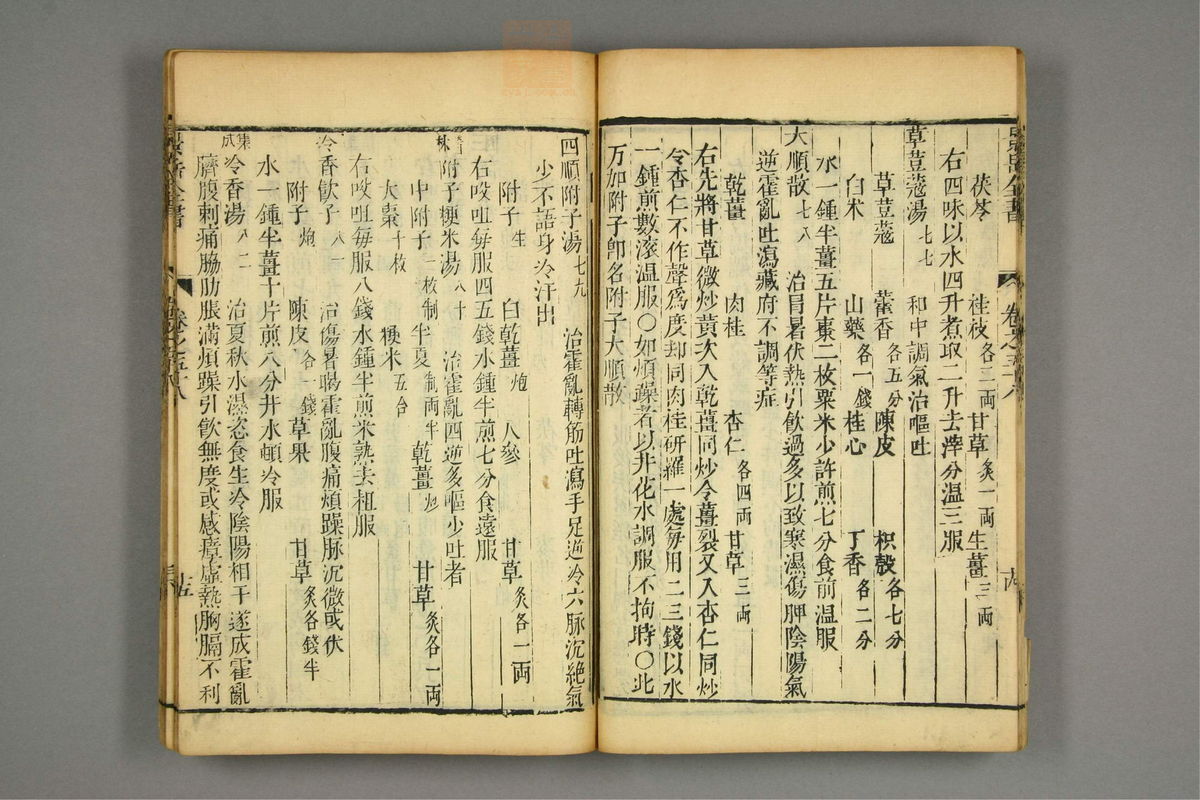 茯苓 桂枝各二両 甘草炙一両 生薑三両
右四味以水四升煮取二升去滓分溫三服
草荳蔻湯七七 和中調氣治嘔吐
草荳蔻 藿香各五分 陳皮 枳殼各七分
白术 山藥各一錢 桂心 丁香各二分
水一鍾半薑五片棗二枚粟米少許煎七分食前溫服
大順散七八 治冐暑伏熱引飲過多以致寒濕傷脾陰陽氣
逆霍亂吐瀉藏府不調等症
乾薑 肉桂 杏仁各四両 甘草三両
右先將甘草微炒黃次入乾薑同炒令薑裂又入杏仁同炒
令杏仁不作聲爲度却同肉桂研羅一處每用二三錢以水
一鍾煎數滾溫服○如煩躁者以井花水調服不拘時○此
方加附子卽名附子大順散
四順附子湯七九 治霍亂轉筋吐瀉手足逆冷六脉沉絶氣
少不語身冷汗出
附子生 白乾薑炮 人參 甘草炙各一両
右㕮咀每服四五錢水鍾半煎七分食遠服
附子粳米湯八十 治霍亂四逆多嘔少吐者
中附子一枚制 半夏制両半 乾薑炮 甘草炙各一両
大棗十枚 粳米五合
右㕮咀每服八錢水鍾半煎米熟去柤服
冷香飲子八一 治傷暑暍霍亂腹痛煩躁脉沉微或伏
附子炮 陳皮各一錢 草果 甘草炙各錢半
水一鍾半薑十片煎八分井水頓冷服
集成冷香湯八二 治夏秋水濕恣食生冷陰陽相干遂成霍亂
臍腹刺痛脇肋脹滿煩躁引飲無度或感瘴虛熱胸膈不利
卷之五十八
十五